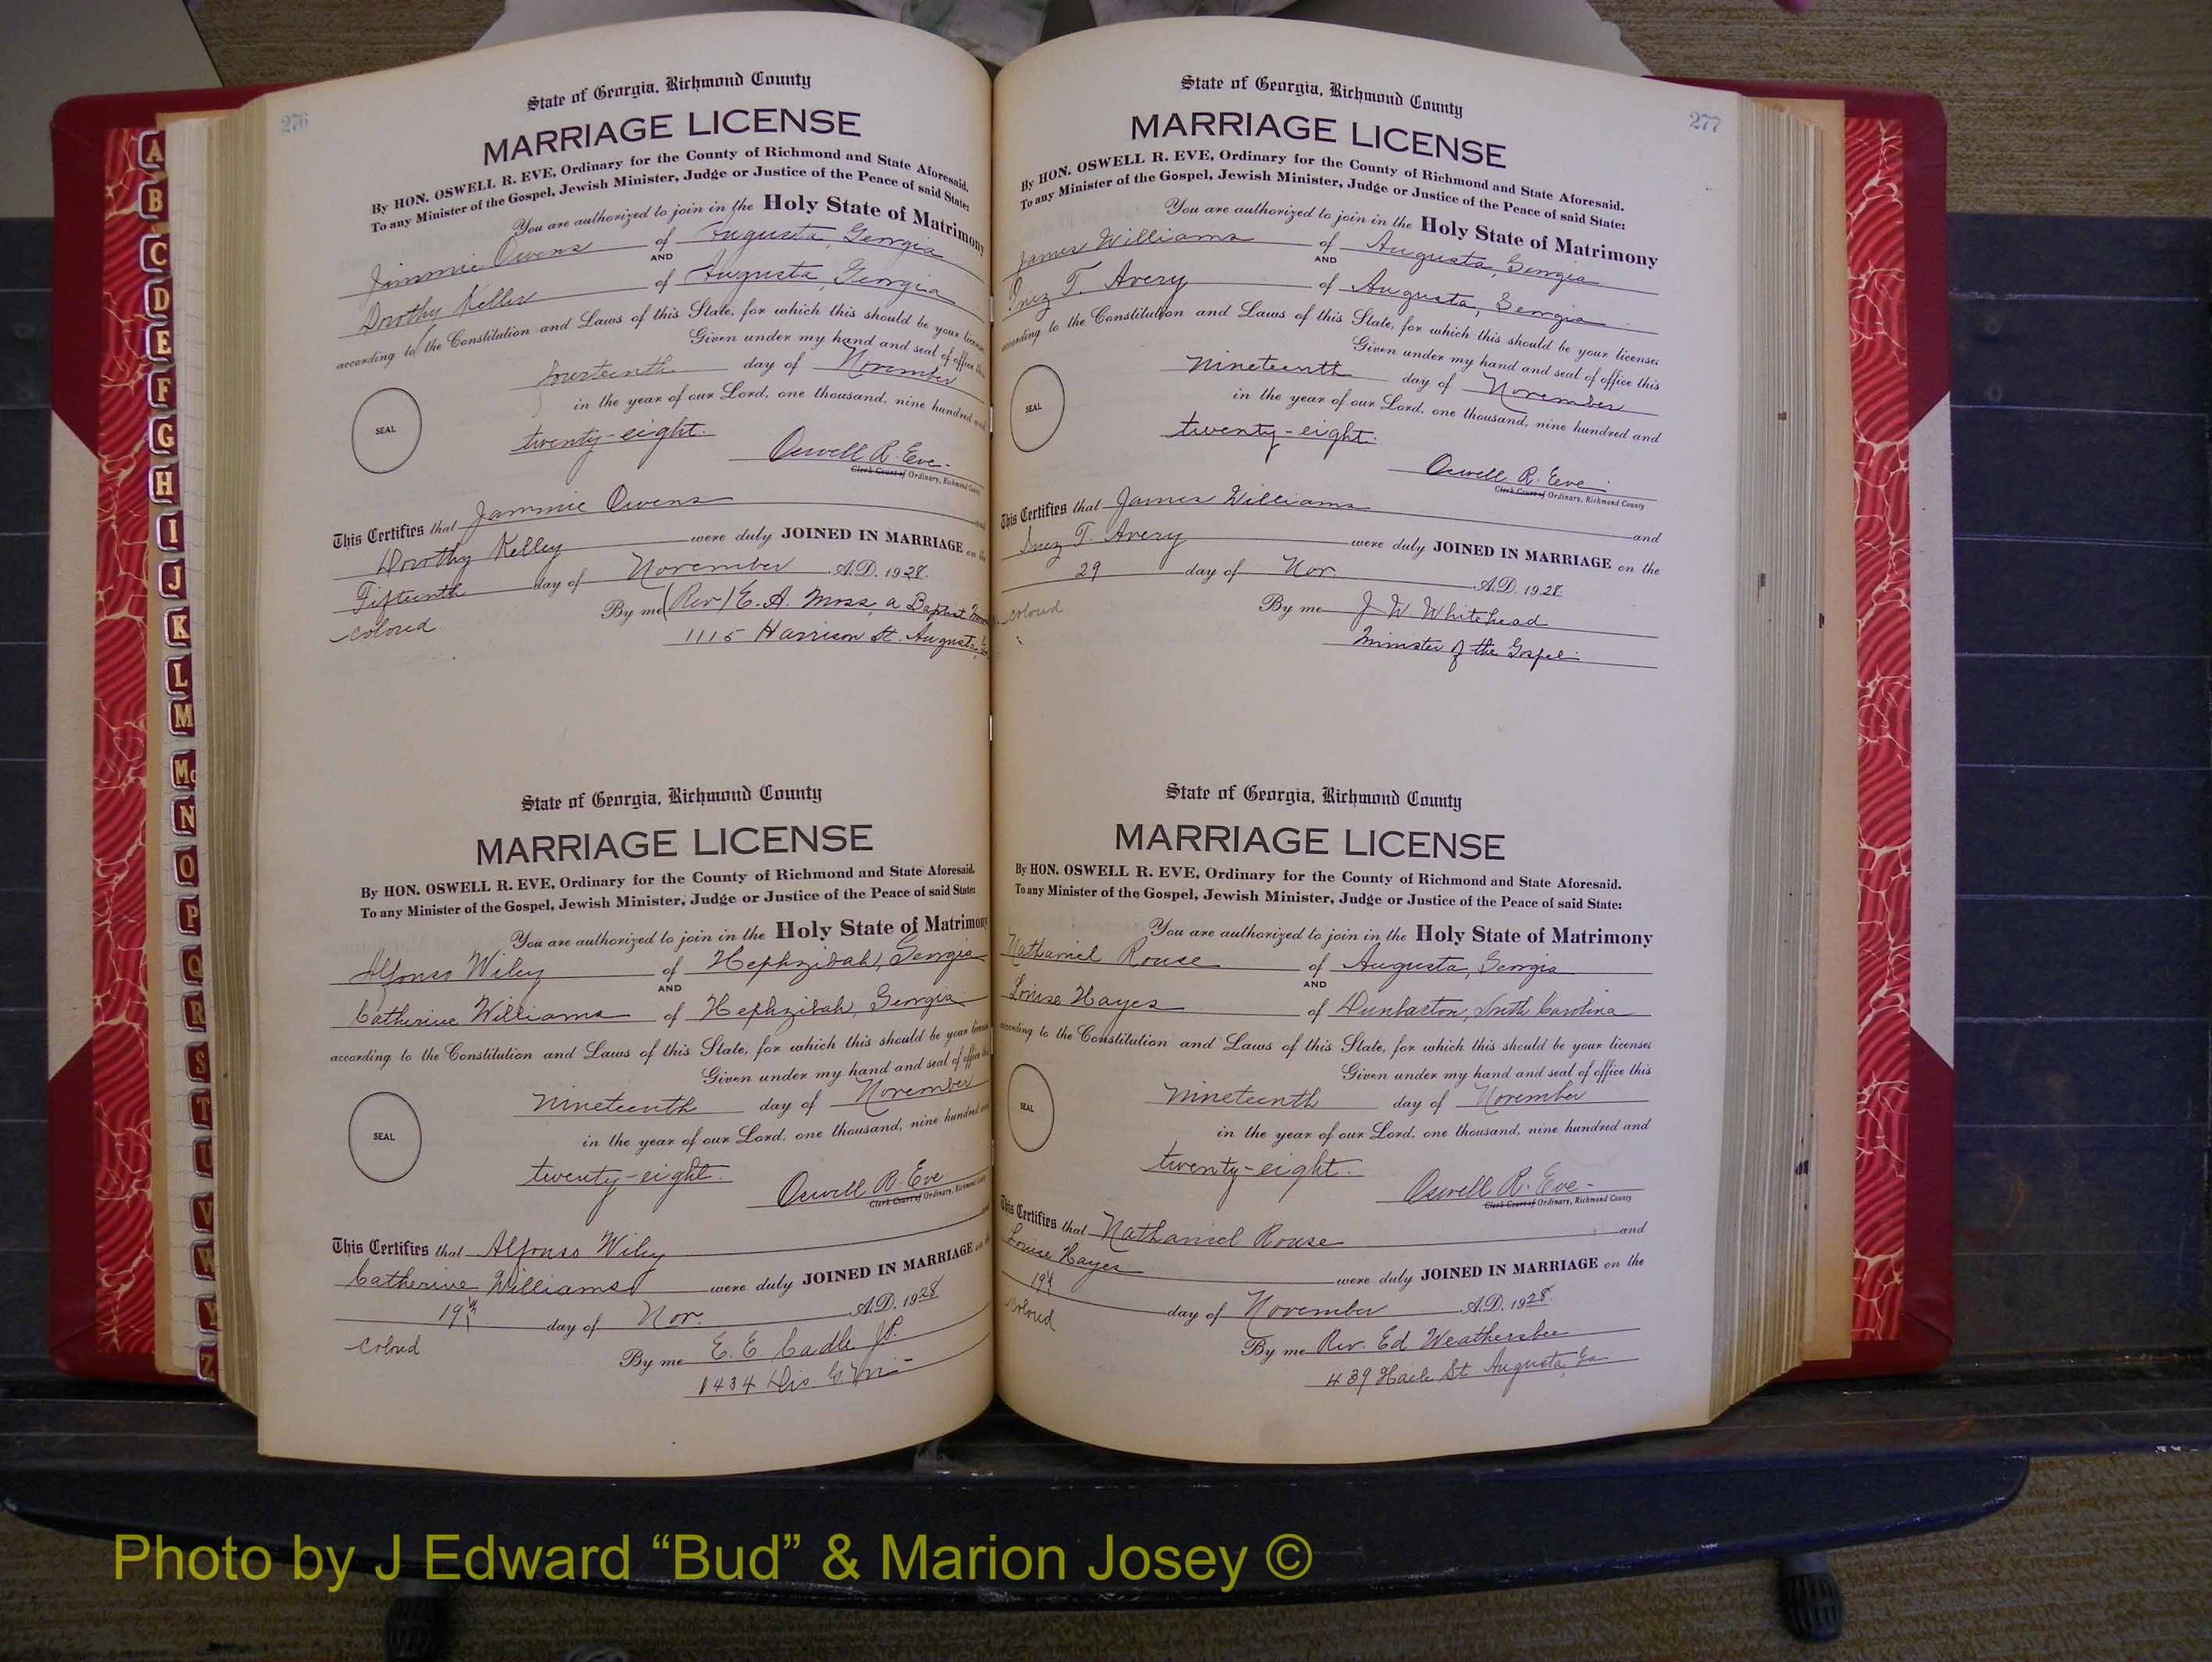 276
State of Georgia, Richmond County
MARRIAGE LICENSE
By HON. OSWELL R. EVE, Ordinary for the County of Richmond and State Aforesaid.
To any Minister of the Gospel, Jewish Minister, Judge or Justice of the Peace of said State:
You are authorized to join in the Holy State of Matrimony
Jimmie Owens of Augusta, Georgia
AND
Dorothy Kelley of Augusta, Georgia
according to the Constitution and Laws of this State, for which this should be your license
Given under my hand and seal of office this
fourteenth day of November
in the year of our Lord, one thousand, nine hundred and
SEAL
twenty-eight.
Oswell R. Eve
Clerk Court of Ordinary, Richmond County
This Certifies that Jammie Owens and
Dorothy Kelley were duly JOINED IN MARRIAGE on the
Fifteenth day of November A.D. 1928.
By me (Rev) E. A. Moss, a Baptist
colored
1115 Harrison St. Augusta,
State of Georgia, Richmond County
MARRIAGE LICENSE
By HON. OSWELL R. EVE, Ordinary for the County of Richmond and State Aforesaid.
To any Minister of the Gospel, Jewish Minister, Judge or Justice of the Peace of said State:
You are authorized to join in the Holy State of Matrimony
Alfonso Wiley of Hephzibah, Georgia
AND
Catherine Williams of Hephzibah, Georgia
according to the Constitution and Laws of this State, for which this should be your license
Given under my hand and seal of office this
nineteenth day of November
in the year of our Lord, one thousand, nine hundred and
SEAL
twenty-eight.
Oswell R. Eve
Clerk Court of Ordinary, Richmond County
This Certifies that Alfonso Wiley and
Catherine Williams were duly JOINED IN MARRIAGE on the
19th day of Nov. A.D. 1928
colored
By me E. E. Cadle J.P.
1434 Dis G. M.
277
State of Georgia, Richmond County
MARRIAGE LICENSE
By HON. OSWELL R. EVE, Ordinary for the County of Richmond and State Aforesaid.
To any Minister of the Gospel, Jewish Minister, Judge or Justice of the Peace of said State:
You are authorized to join in the Holy State of Matrimony
James Williams of Augusta, Georgia
AND
Inez T. Avery of Augusta, Georgia
according to the Constitution and Laws of this State, for which this should be your license;
Given under my hand and seal of office this
nineteenth day of November
in the year of our Lord, one thousand, nine hundred and
SEAL
twenty-eight.
Oswell R. Eve
Clerk Court of Ordinary, Richmond County
This Certifies that James Williams and
Inez T. Avery were duly JOINED IN MARRIAGE on the
29 day of Nov. A.D. 1928
colored
By me J W Whitehead
Minister of the Gospel
State of Georgia, Richmond County
MARRIAGE LICENSE
By HON. OSWELL R. EVE, Ordinary for the County of Richmond and State Aforesaid.
To any Minister of the Gospel, Jewish Minister, Judge or Justice of the Peace of said State:
You are authorized to join in the Holy State of Matrimony
Nathaniel Rouse of Augusta, Georgia
AND
Louise Hayes of Dunbarton, South Carolina
according to the Constitution and Laws of this State, for which this should be your license;
Given under my hand and seal of office this
nineteenth day of November
in the year of our Lord, one thousand, nine hundred and
SEAL
twenty-eight.
Oswell R. Eve
Clerk Court of Ordinary, Richmond County
This Certifies that Nathaniel Rouse and
Louise Hayes were duly JOINED IN MARRIAGE on the
19th day of November A.D. 1928.
colored
By me Rev. Ed Weathersbee
439 Hale St Augusta, Ga
A
B
C
D
E
F
G
H
I
J
K
L
M
Mc
N
O
P
Q
R
S
T
U
V
W
Y
Z
Photo by J Edward “Bud” & Marion Josey ©